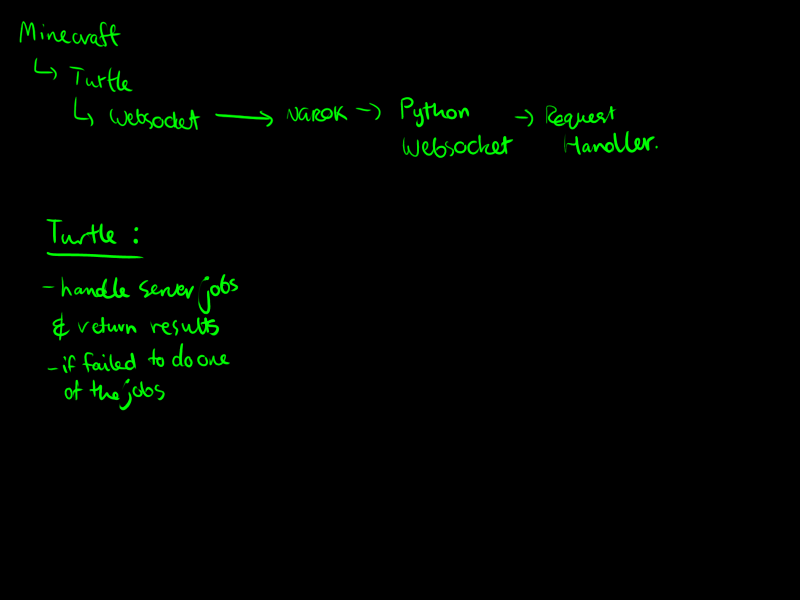 Minecraft
↳ Turtle
↳ Websocket → NGROK → Python → Request
Websocket Handler.
Turtle :
- handle server jobs
& return results
- if failed to do one
of the jobs